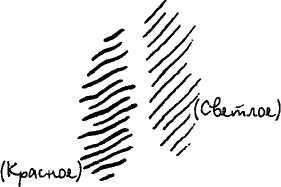 (Светлое)
(Красное)